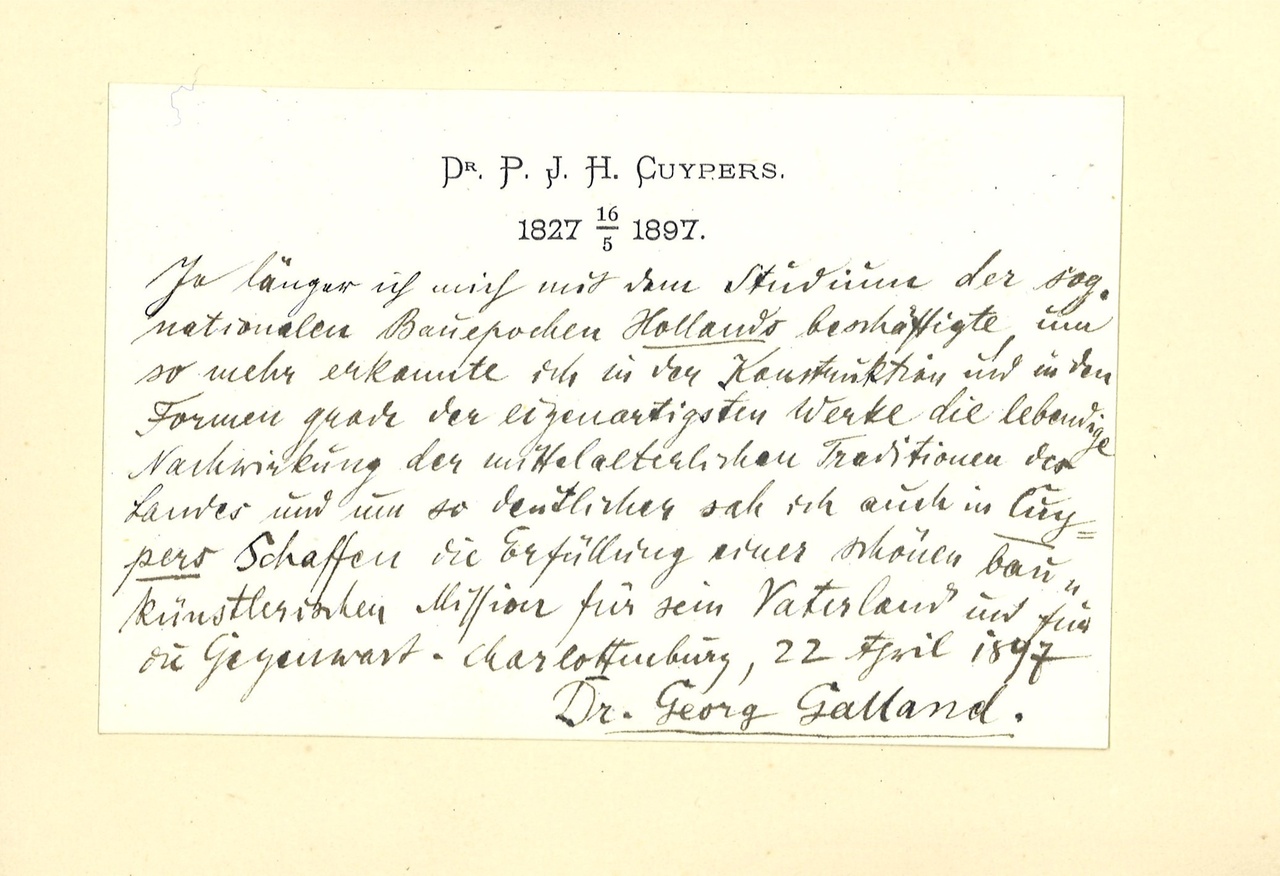 Dr. P. J. H. Cuypers.
1827 16/5 1897.
Je länger ich mich mit dem Studium der sog.
nationalen Bauepochen Hollands beschäftigte, um
so mehr erkannte ich in der Konstruktion und in den
Formen grade der eigenartigsten Werke die lebendige
Nachwirkung der mittelalterlichen Traditionen des
Landes und um so deutlicher sah ich auch in Cuy=
pers Schaffen die Erfüllung einer schönen bau„
künstlerischen Mission für sein Vaterland und für
die Gegenwart. Charlottenburg, 22 April 1897
Dr. Georg Galland.